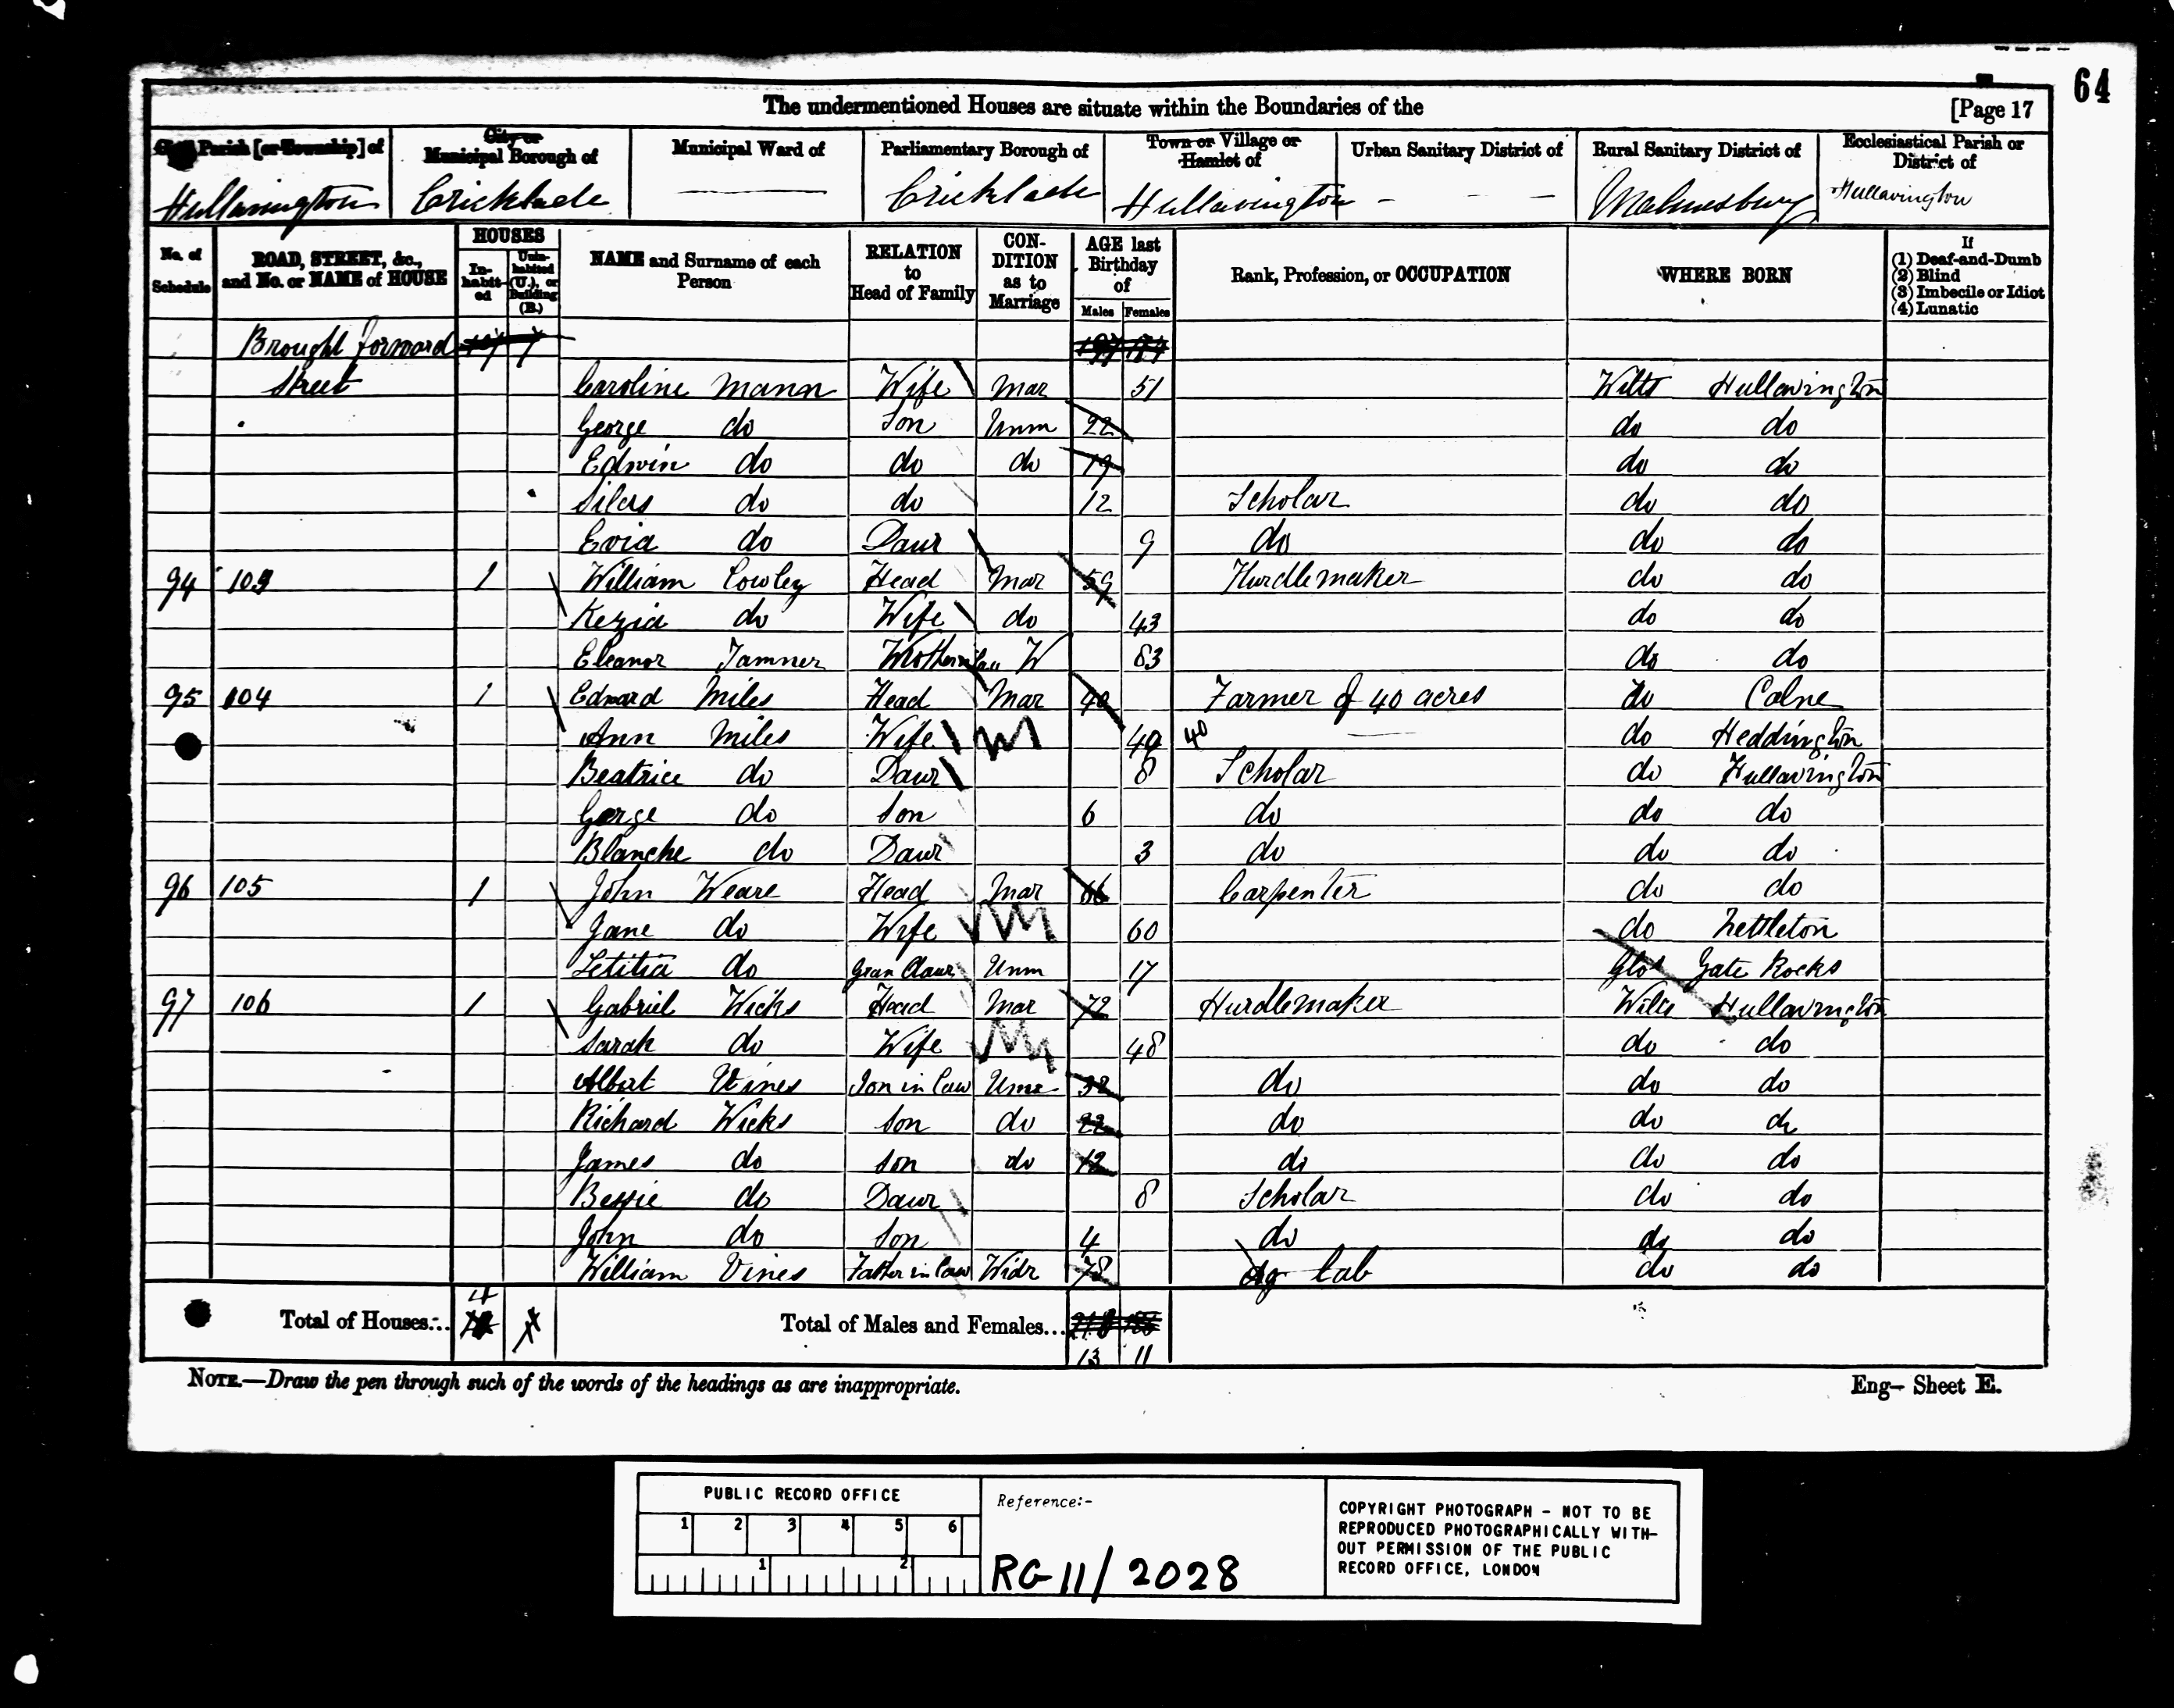 64
The undermentioned Houses are situate within the Boundaries of the [Page 17
Civil Parish [or Township] of City or Municipal Borough of Municipal Ward of Parliamentary Borough of Town or Village or Hamlet of Urban Sanitary District of Rural Sanitary District of Ecclesiastical Parish or District of
Hullavington Cricklade Cricklade Hullavington Malmesbury Hullavington
No. of Schedule ROAD, STREET, &c., and No. or NAME of HOUSE HOUSES In-habit-ed Unin-habited (U.), or Building (B.) NAME and Surname of each Person RELATION to Head of Family CON-DITION as to Marriage AGE last Birthday of Males Females Rank, Profession, or OCCUPATION WHERE BORN If (1) Deaf-and-Dumb (2) Blind (3) Imbecile or Idiot (4) Lunatic
Brought forward
Street Caroline Mann Wife Mar 51 Wilts Hullavington
George do Son Unm 22 do do
Edwin do do do 19 do do
Silas do do 12 Scholar do do
Evia do Daur 9 do do do
94 103 1 William Cowley Head Mar 59 Hurdlemaker do do
Kezia do Wife do 43 do do
Eleanor Tanner Mother in law W 83 do do
95 104 1 Edward Miles Head Mar 40 Farmer of 40 acres do Calne
Ann Miles Wife M 40 40 do Heddington
Beatrice do Daur 8 Scholar do Hullavington
George do Son 6 do do do
Blanche do Daur 3 do do do
96 105 1 John Weare Head Mar 66 Carpenter do do
Jane do Wife 60 do Nettleton
Letitia do Gran Daur Unm 17 Glos Gate Rocks
97 106 1 Gabriel Wicks Head Mar 72 Hurdlemaker Wilts Hullavington
Sarah do Wife 48 do do
Albert Vines Son in Law Unm 32 do do do
Richard Wicks Son do 22 do do do
James do Son do 12 do do do
Bessie do Daur 8 Scholar do do
John do Son 4 do do do
William Vines Father in Law Widr 78 Ag Lab do do
Total of Houses... 4 Total of Males and Females...
13 11
NOTE.—Draw the pen through such of the words of the headings as are inappropriate. Eng— Sheet E.
PUBLIC RECORD OFFICE
1 2 3 4 5 6
1 2
Reference:-
RG 11/2028
COPYRIGHT PHOTOGRAPH - NOT TO BE
REPRODUCED PHOTOGRAPHICALLY WITH-
OUT PERMISSION OF THE PUBLIC
RECORD OFFICE, LONDON